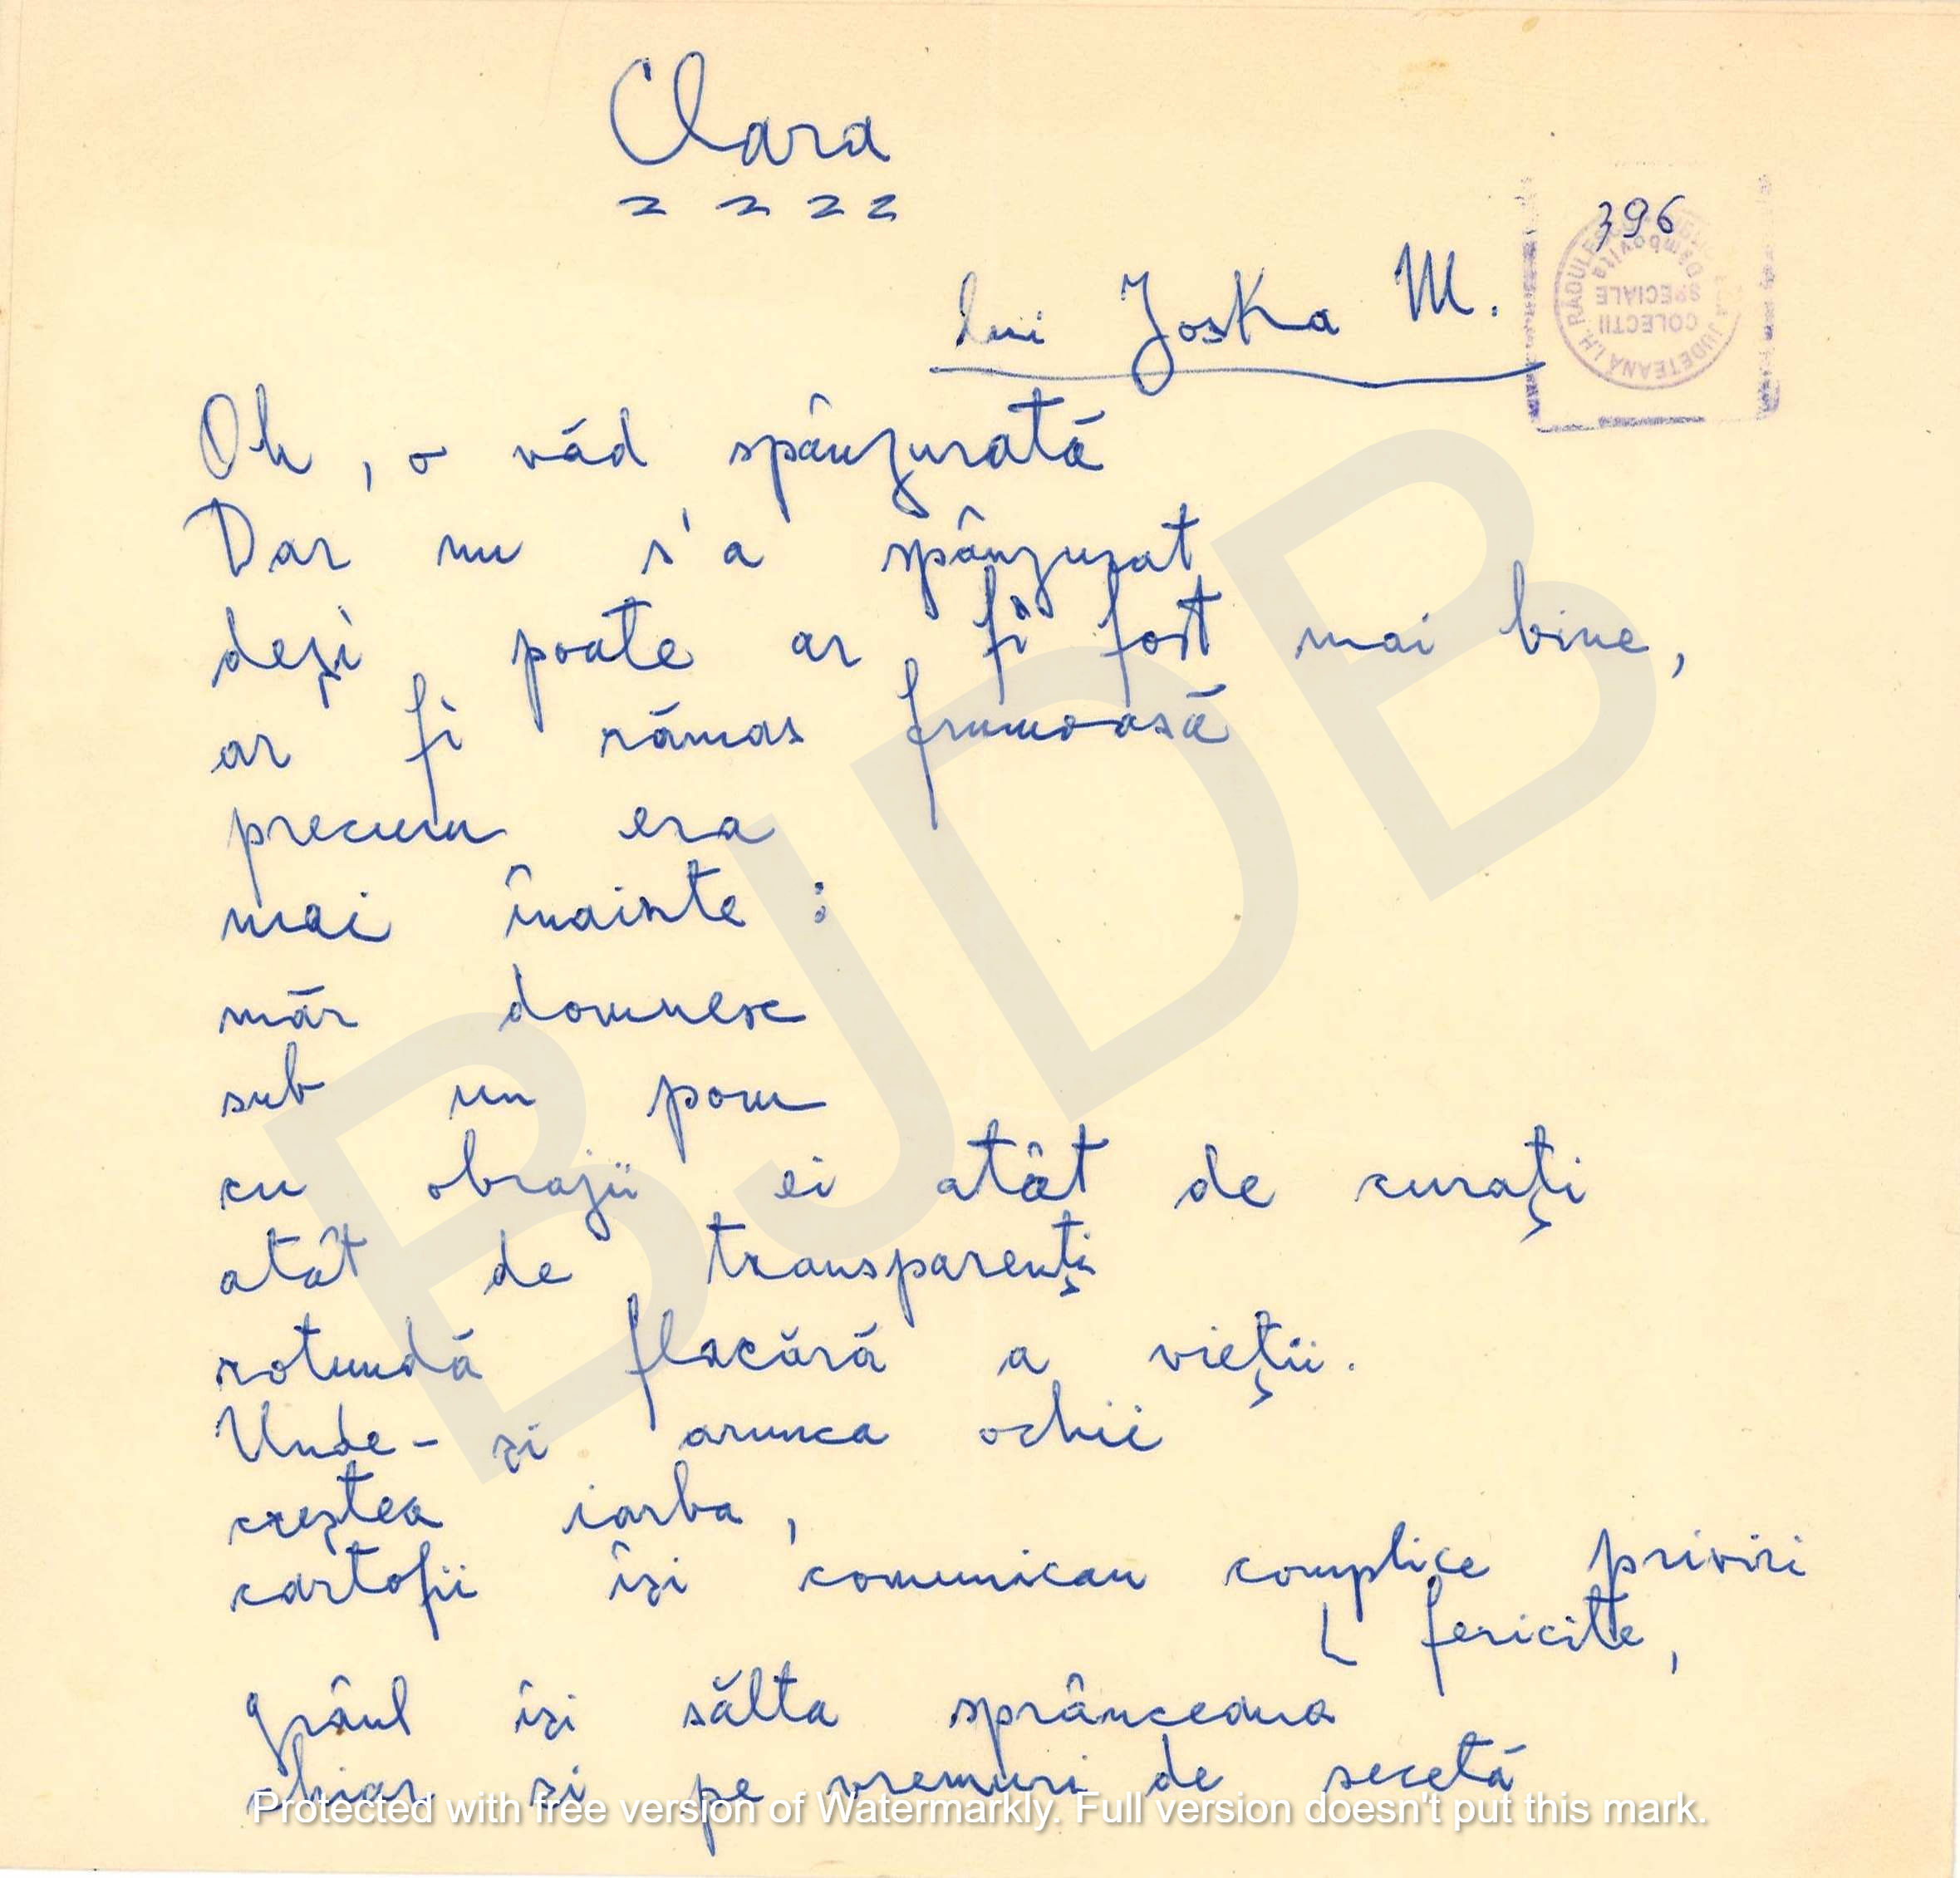 Clara
396
lui Joska M.
Oh, o văd spânzurată
Dar nu s'a spânzurat
deși poate ar fi fost mai bine,
ar fi rămas frumoasă
precum era
mai înainte:
măr domnesc
sub un pom
cu obrajii ei atât de curați
atât de transparenți
rotundă flacără a vieții.
Unde-și arunca ochii
creștea iarba,
cartofii își comunicau complice priviri
fericite,
grâul își sălta sprânceana
chiar și pe vremuri de secetă
I.H. RĂDULESCU
JUDEȚEANĂ
Dâmbovița
COLECȚII
SPECIALE
BJDB
Protected with free version of Watermarkly. Full version doesn't put this mark.